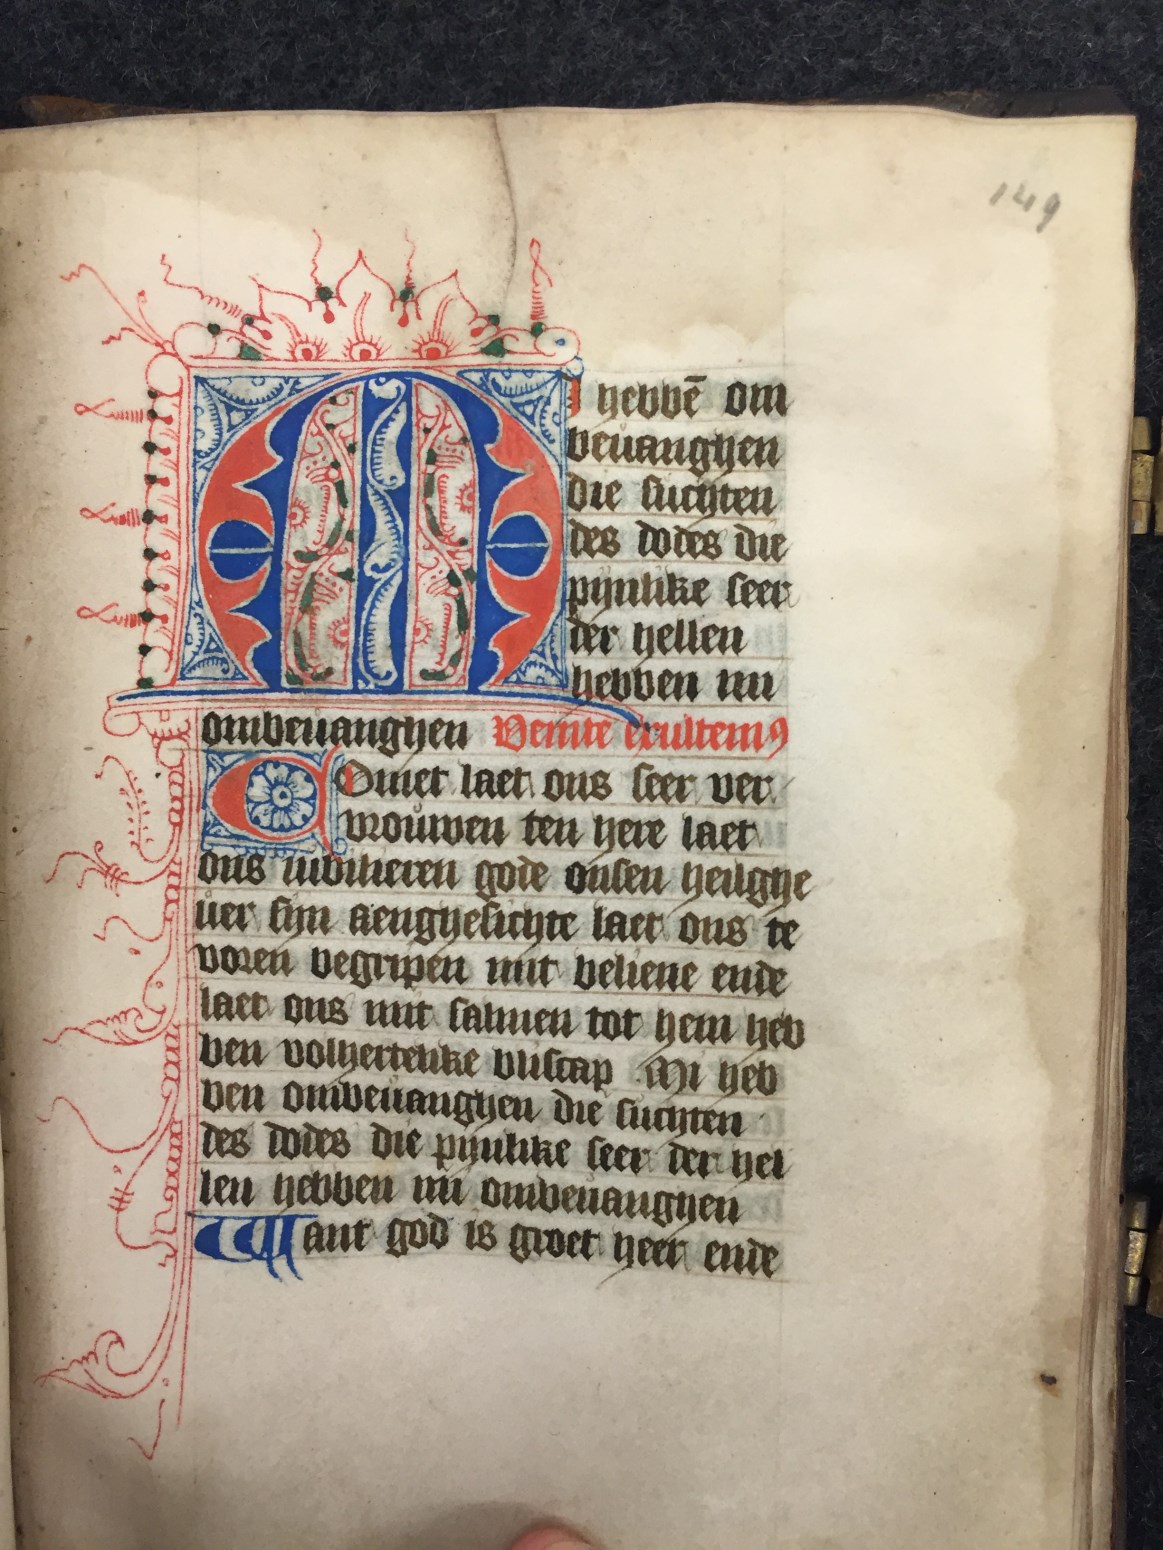 149
MI hebbē om
beuanghen
die suchten
des dodes die
pijnlike seer
der hellen
hebben mi
ombeuanghen Venite exultemꝰ
COmet laet ons seer ver
vrouwen ten here laet
ons iubilieren gode onsen heilghe
uer sijn aenghesichte laet ons te
voren begripen mit beliene ende
laet ons mit salmen tot hem heb
ben volhertelike bliscap Mi heb
ben ombeuanghen die suchten
des dodes die pijnlike seer der hel
len hebben mi ombeuanghen
Want god is groet heer ende